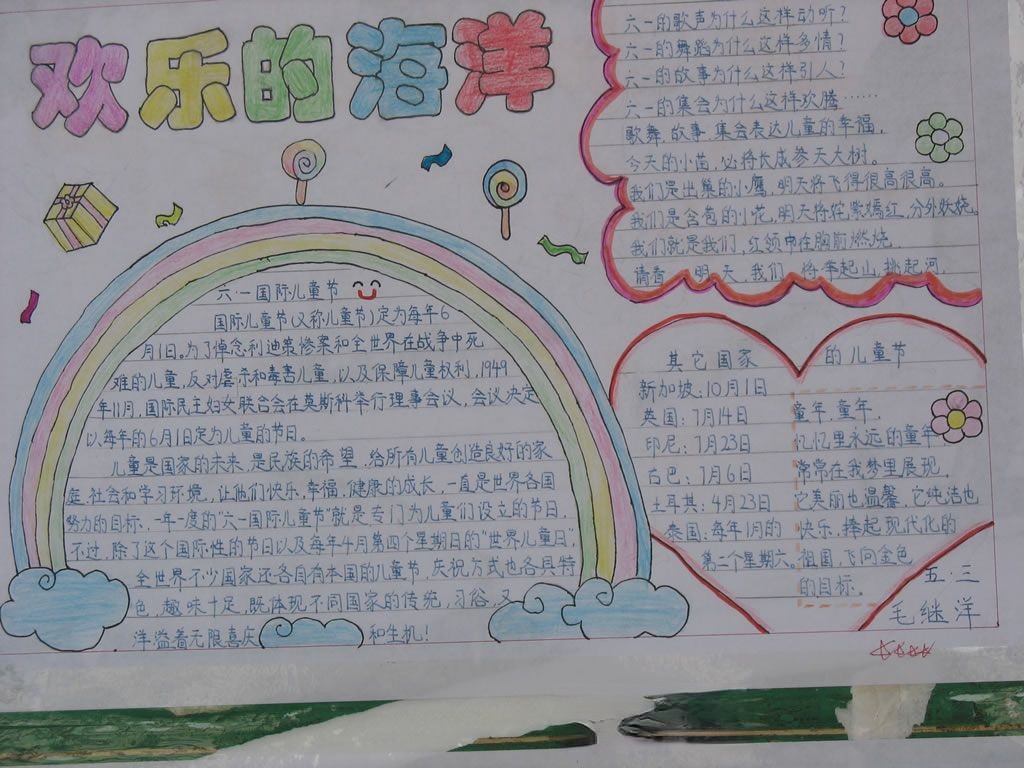 欢乐的海洋
六·一国际儿童节
国际儿童节(又称儿童节)定为每年6
月1日。为了悼念利迪策惨案和全世界在战争中死
难的儿童,反对虐杀和毒害儿童,以及保障儿童权利,1949
年11月,国际民主妇女联合会在莫斯科举行理事会议,会议决定
以每年的6月1日定为儿童的节日。
儿童是国家的未来,是民族的希望,给所有儿童创造良好的家
庭、社会和学习环境,让他们快乐,幸福,健康的成长,一直是世界各国
努力的目标,一年一度的"六一国际儿童节"就是专门为儿童们设立的节日,
不过,除了这个国际性的节日以及每年4月第四个星期日的"世界儿童日",
全世界不少国家还各自有本国的儿童节,庆祝方式也各具特
色,趣味十足,既体现不同国家的传统,习俗,又
洋溢着无限喜庆 和生机!
六一的歌声为什么这样动听?
六一的舞蹈为什么这样多情?
六一的故事为什么这样引人?
六一的集会为什么这样欢腾……
歌舞,故事,集会表达儿童的幸福,
今天的小苗,必将长成参天大树。
我们是出巢的小鹰,明天将飞得很高很高。
我们是含苞的小花,明天将姹紫嫣红,分外妖娆。
我们就是我们,红领巾在胸前燃烧.
请看 明天,我们 将举起山,挑起河.
其它国家 的儿童节
新加坡:10月1日
英国:7月14日
印尼:7月23日
古巴:7月6日
土耳其:4月23日
泰国:每年1月的
第二个星期六。
童年,童年,
忆忆里永远的童年
常常在我梦里展现,
它美丽也温馨,它纯洁也
快乐,捧起现代化的
祖国,飞向金色
的目标.
五·三
毛继洋